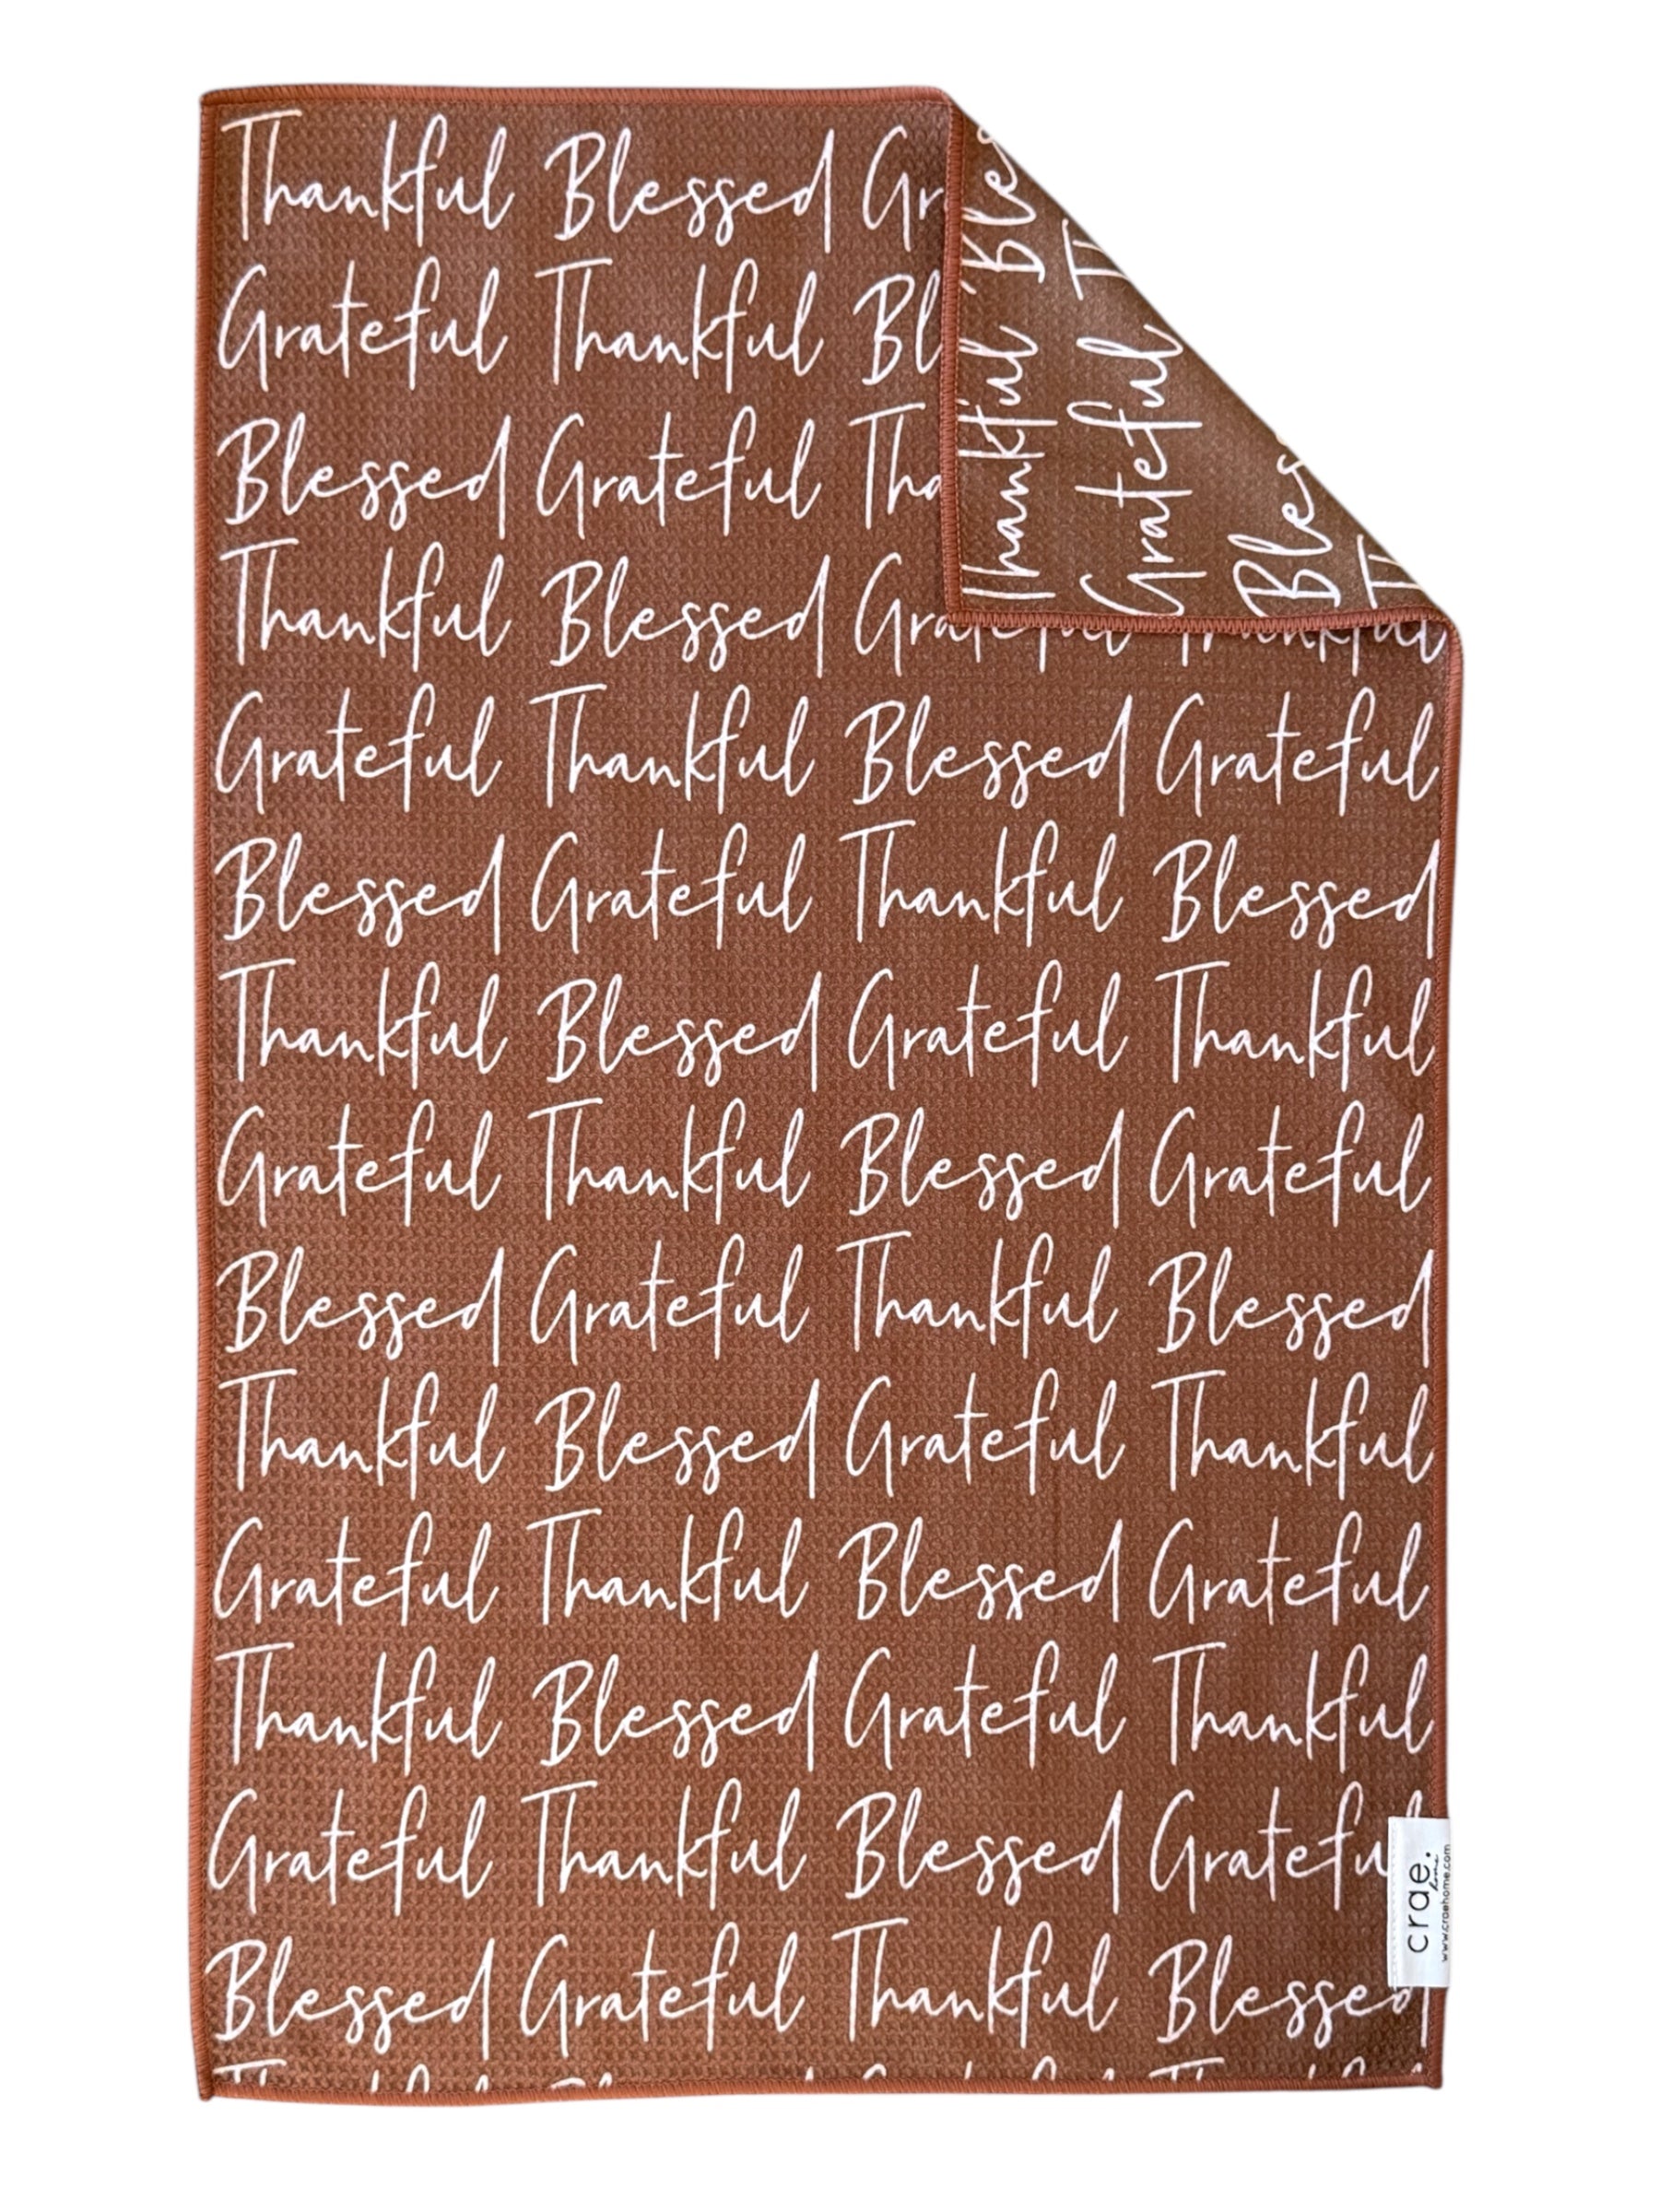 Thankful Blessed Gr
Grateful Thankful Bl
Blessed Grateful Tha
Thankful Blessed Grateful Thankful
Grateful Thankful Blessed Grateful
Blessed Grateful Thankful Blessed
Thankful Blessed Grateful Thankful
Grateful Thankful Blessed Grateful
Blessed Grateful Thankful Blessed
Thankful Blessed Grateful Thankful
Grateful Thankful Blessed Grateful
Thankful Blessed Grateful Thankful
Grateful Thankful Blessed Gratefu
Blessed Grateful Thankful Blessed
Thankful Bles
Grateful Th
Bles
Th
crae.
home
www.craehome.com